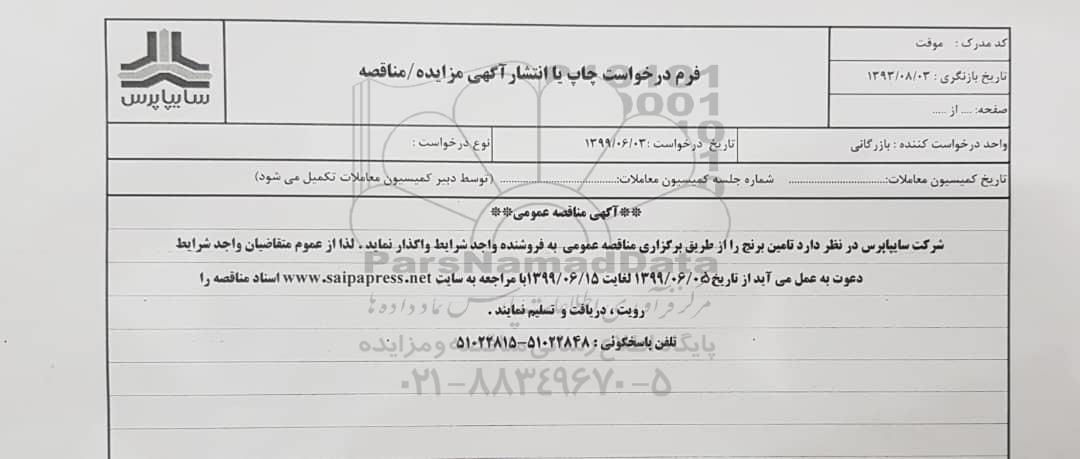 کد مدرک : موقت
تاریخ بازنگری : ۱۳۹۳/۰۸/۰۳
صفحه: .... از .....
فرم درخواست چاپ یا انتشار آگهی مزایده/مناقصه
سایپاپرس
واحد درخواست کننده : بازرگانی
تاریخ درخواست :۱۳۹۹/۰۶/۰۳
نوع درخواست :
تاریخ کمیسیون معاملات:................................ شماره جلسه کمیسیون معاملات:....................................... (توسط دبیر کمیسیون معاملات تکمیل می شود)
**آگهی مناقصه عمومی**
شرکت سایپاپرس در نظر دارد تامین برنج را از طریق برگزاری مناقصه عمومی به فروشنده واجد شرایط واگذار نماید . لذا از عموم متقاضیان واجد شرایط
دعوت به عمل می آید از تاریخ ۱۳۹۹/۰۶/۰۵ لغایت ۱۳۹۹/۰۶/۱۵با مراجعه به سایت www.saipapress.net اسناد مناقصه را
رویت ، دریافت و تسلیم نمایند .
تلفن پاسخگوئی : ۵۱۰۲۲۸۴۸-۵۱۰۲۲۸۱۵
ParsNamadData
پایگاه اطلاع رسانی مناقصه و مزایده
۰۲۱-۸۸۳۴۹۶۷۰-۵